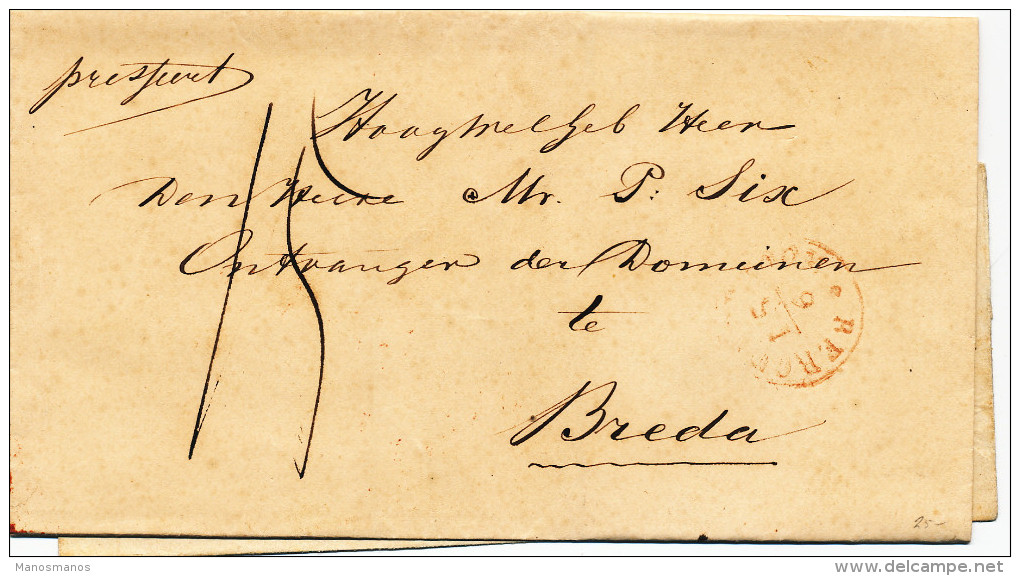 presfert
15
HoogWelGeb Heer
Den Heere Mr. P: Six
Ontvanger der Domeinen
te
Breda
BERGEN
15/9
25-
Manosmanos
delcampe.net